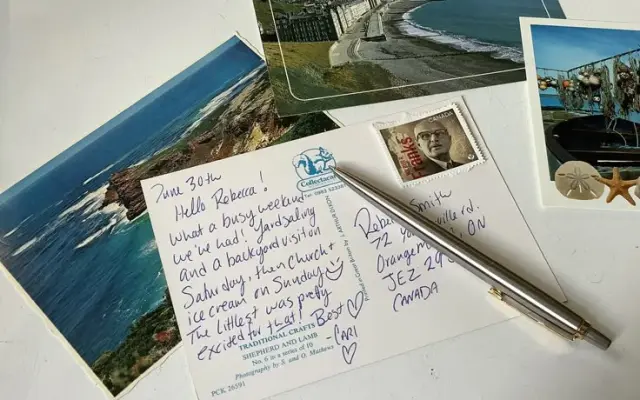 June 30th
Hello Rebecca!
What a busy weekend
we've had! Yardsaling
and a backyard visit on
Saturday, then Church +
ice cream on Sunday
The littlest was pretty
excited for that! Best
- CARI
TRADITIONAL CRAFTS
SHEPHERD AND LAMB
No. 6 in a series of 10
Photography by S. and O. Mathews
PCK 26591
Collectacard
CANADA
Smith
72
ON
JEZ
CANADA